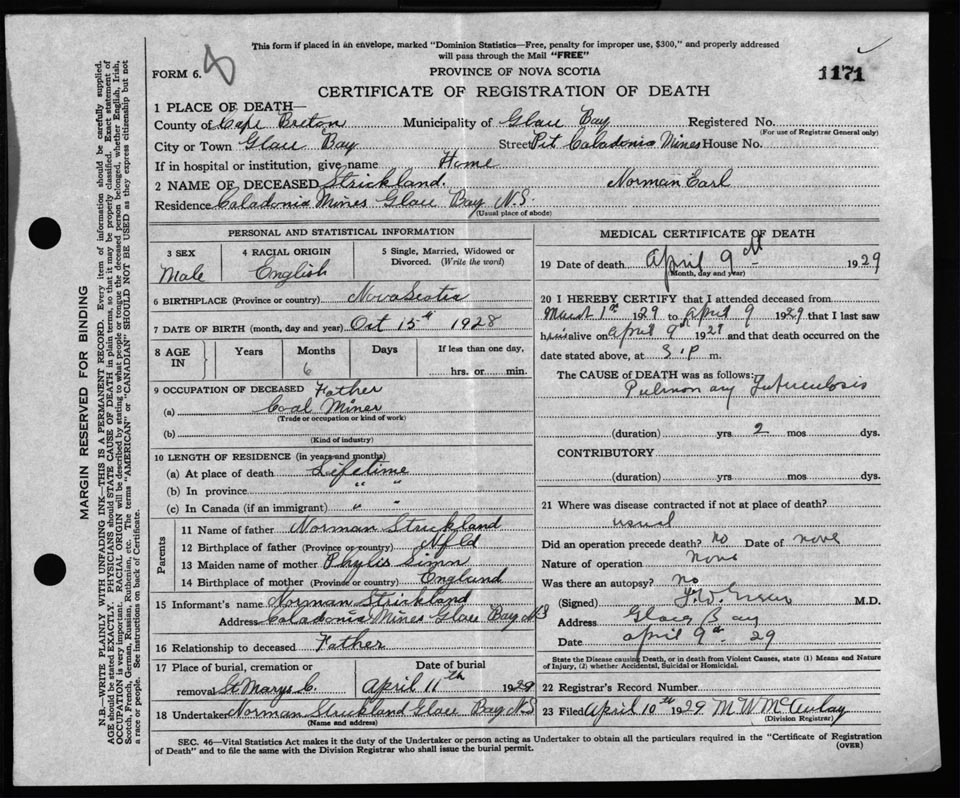 This form if placed in an envelope, marked "Dominion Statistics—Free, penalty for improper use, $300," and properly addressed
will pass through the Mail "FREE"
FORM 6.
PROVINCE OF NOVA SCOTIA
1171
CERTIFICATE OF REGISTRATION OF DEATH
1 PLACE OF DEATH—
County of Cape Breton Municipality of Glace Bay Registered No.
(For use of Registrar General only)
City or Town Glace Bay Street Pit Caladonia Mines House No.
If in hospital or institution, give name Home
2 NAME OF DECEASED Strickland. Norman Earl
Residence Caladonia Mines Glace Bay N.S.
(Usual place of abode)
PERSONAL AND STATISTICAL INFORMATION
3 SEX 4 RACIAL ORIGIN 5 Single, Married, Widowed or
Divorced. (Write the word)
Male English
6 BIRTHPLACE (Province or country) Nova Scotia
7 DATE OF BIRTH (month, day and year) Oct 15th 1928
8 AGE IN Years Months Days If less than one day,
6 hrs. or min.
9 OCCUPATION OF DECEASED Father
(a) Coal Miner
(Trade or occupation or kind of work)
(b)
(Kind of industry)
10 LENGTH OF RESIDENCE (in years and months)
(a) At place of death Lifetime
(b) In province " "
(c) In Canada (if an immigrant) " "
Parents
11 Name of father Norman Strickland
12 Birthplace of father (Province or country) Nfld
13 Maiden name of mother Phylis Simm
14 Birthplace of mother (Province or country) England
15 Informant's name Norman Strickland
Address Caladonia Mines Glace Bay NS
16 Relationship to deceased Father
17 Place of burial, cremation or Date of burial
removal St Marys C. April 11th 1929
18 Undertaker Norman Strickland Glace Bay NS
(Name and address)
MEDICAL CERTIFICATE OF DEATH
19 Date of death April 9th 1929
(Month, day and year)
20 I HEREBY CERTIFY that I attended deceased from
March 1st 1929 to April 9 1929 that I last saw
him alive on April 9th 1929 and that death occurred on the
date stated above, at 3. P m.
The CAUSE of DEATH was as follows:
Pulmonary Tuberculosis
(duration) yrs 2 mos dys.
CONTRIBUTORY
(duration) yrs. mos. dys.
21 Where was disease contracted if not at place of death?
usual
Did an operation precede death? no Date of none
Nature of operation none
Was there an autopsy? no
(Signed) M.D.
Address Glace Bay
Date April 9th 29
State the Disease causing Death, or in death from Violent Causes, state (1) Means and Nature
of Injury, (2) whether Accidental, Suicidal or Homicidal.
22 Registrar's Record Number
23 Filed April 10th 1929 M W McAulay
(Division Registrar)
SEC. 46—Vital Statistics Act makes it the duty of the Undertaker or person acting as Undertaker to obtain all the particulars required in the "Certificate of Registration
of Death" and to file the same with the Division Registrar who shall issue the burial permit.
(OVER)
MARGIN RESERVED FOR BINDING
N.B.—WRITE PLAINLY WITH UNFADING INK—THIS IS A PERMANENT RECORD. Every item of information should be carefully supplied.
AGE should be stated EXACTLY. PHYSICIANS should STATE CAUSE OF DEATH in plain terms, so that it may be properly classified. Exact statement of
OCCUPATION is very important. RACIAL ORIGIN will be described by stating to what people or tongue the deceased person belonged, whether English, Irish,
Scotch, French, German, Russian, Ruthenian, etc. The terms "AMERICAN" or "CANADIAN" SHOULD NOT BE USED as they express citizenship but not
a race or people. See instructions on back of Certificate.